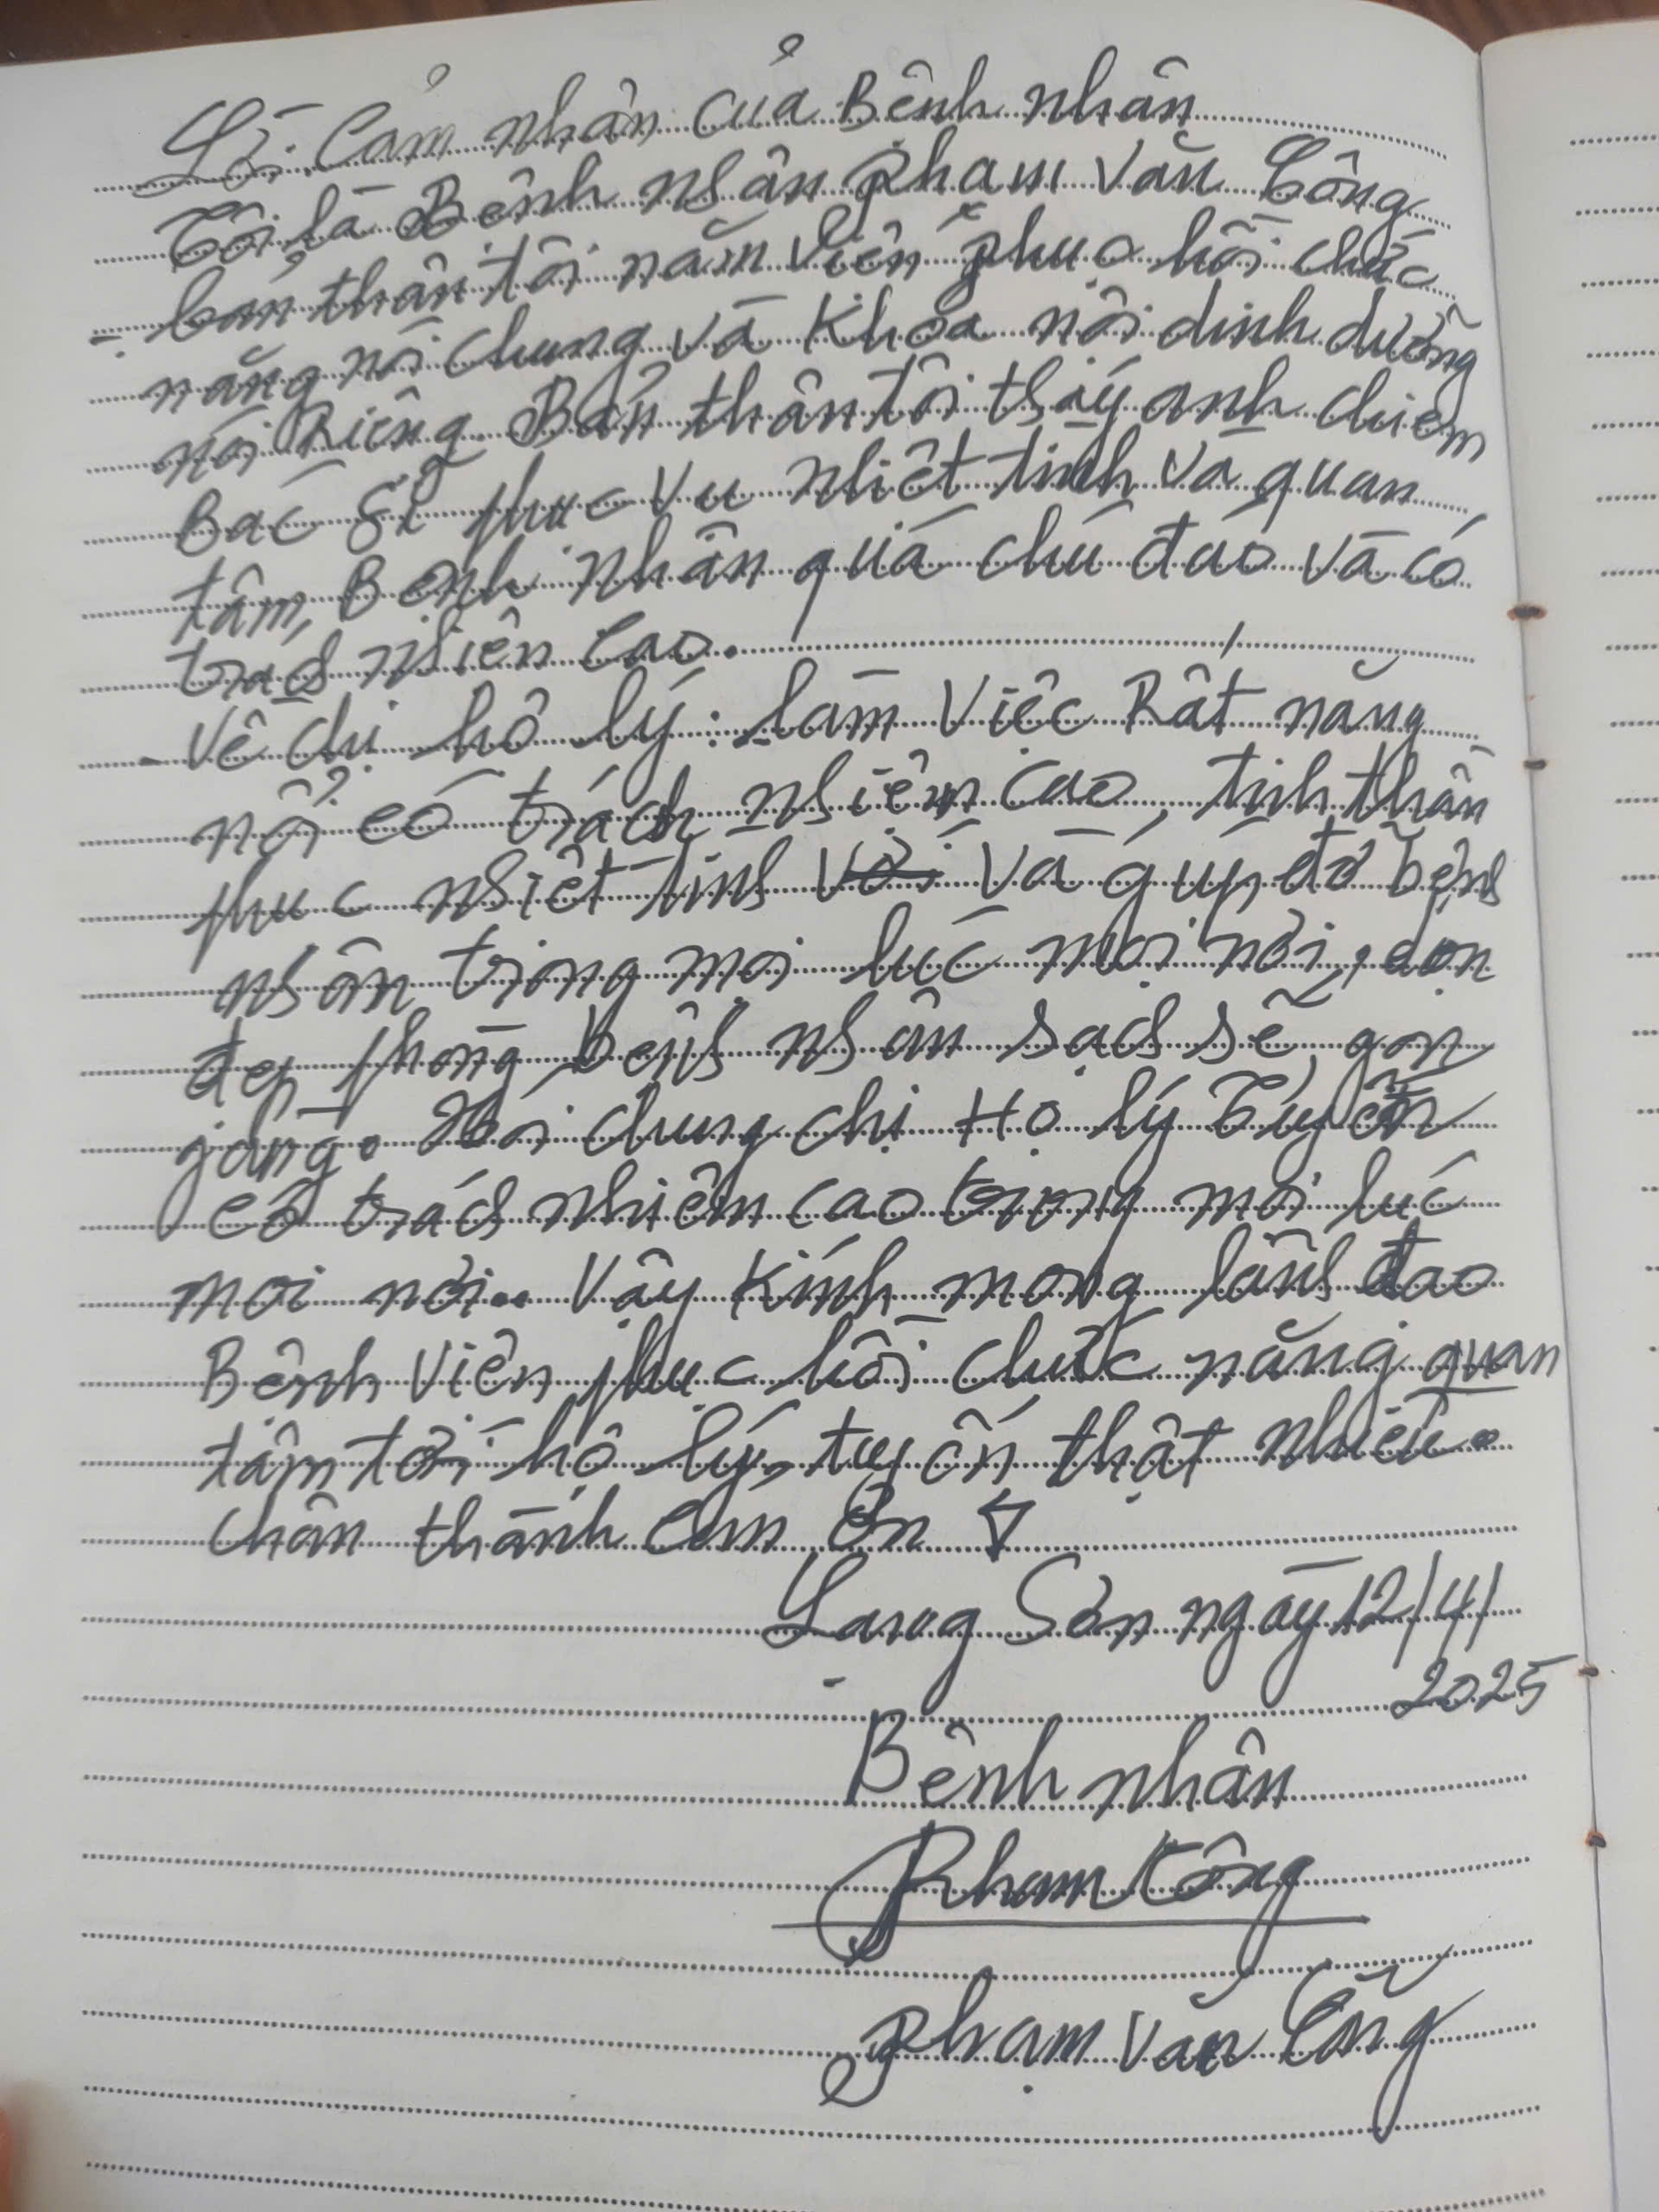 Lời Cảm nhận của Bệnh nhân
Tôi là Bệnh nhân Phạm Văn Công
- bản thân tôi nằm Viện phục hồi chức
năng nói chung và Khoa nội dinh dưỡng
nói Riêng. Bản thân tôi thấy anh chị em
Bác Sĩ phục vụ nhiệt tình và quan
tâm, Bệnh nhân quá chú đáo và có
trách nhiên cao.
- Về chị hộ lý: làm Việc Rất năng
nổ có trách nhiệm cao, tinh thần
phục nhiệt tình và giúp đỡ bệnh
nhân trong mọi lúc mọi nơi, dọn
dẹp phòng bệnh nhân sạch sẽ, gọn
gàng. Nói chung chị Hộ lý Tuyến
có trách nhiệm cao trong mọi lúc
mọi nơi.. Vậy Kính mong lãnh đạo
Bệnh Viện phục hồi chức năng quan
tâm tới hộ lý, tuyến thật nhiều.
Chân thành cảm ơn
Lạng Sơn ngày 12/4/
2025
Bệnh nhân
Phạm Công
Phạm Văn Công